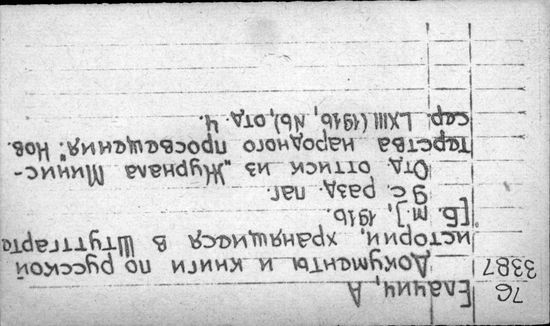 76
3387
Елачич, А
Документы и книги по русской
истории, хранящиеся в Штуттгарте
[Б. м.], 1916.
9 с. разд. паг.
Отд. оттиск из „Журнала Минис-
терства народного просвещения". Нов.
сер. LXIII (1916, №6), отд. 4.